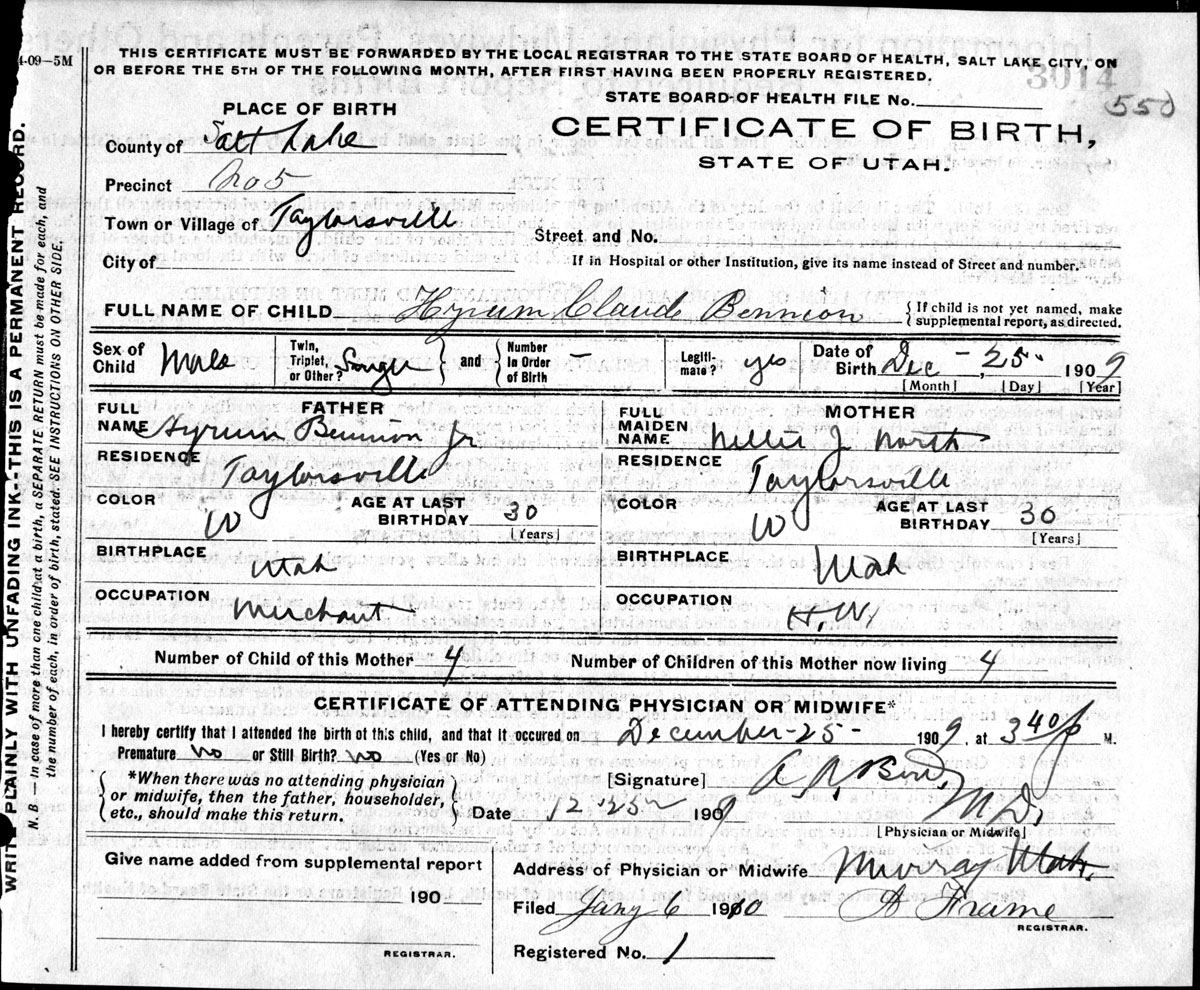 4-09—5M
THIS CERTIFICATE MUST BE FORWARDED BY THE LOCAL REGISTRAR TO THE STATE BOARD OF HEALTH, SALT LAKE CITY, ON
OR BEFORE THE 5TH OF THE FOLLOWING MONTH, AFTER FIRST HAVING BEEN PROPERLY REGISTERED.
3014
STATE BOARD OF HEALTH FILE No.
550
PLACE OF BIRTH
CERTIFICATE OF BIRTH,
STATE OF UTAH.
County of Salt Lake
Precinct No 5
Town or Village of Taylorsville
Street and No.
City of
If in Hospital or other Institution, give its name instead of Street and number.
FULL NAME OF CHILD Hyrum Claude Bennion
{ If child is not yet named, make
supplemental report, as directed.
Sex of Child Male
Twin, Triplet, or Other?
} and { Number in Order of Birth —
Legitimate? yes
Date of Birth Dec - 25 - 1909
[Month] [Day] [Year]
FATHER
FULL NAME Hyrum Bennion Jr
RESIDENCE Taylorsville
COLOR W
AGE AT LAST BIRTHDAY 30
[Years]
BIRTHPLACE Utah
OCCUPATION Merchant
MOTHER
FULL MAIDEN NAME Nellie J North
RESIDENCE Taylorsville
COLOR W
AGE AT LAST BIRTHDAY 30
[Years]
BIRTHPLACE Utah
OCCUPATION H.W.
Number of Child of this Mother 4 Number of Children of this Mother now living 4
CERTIFICATE OF ATTENDING PHYSICIAN OR MIDWIFE*
I hereby certify that I attended the birth of this child, and that it occured on December-25- 1909, at 3 40 p M.
Premature No or Still Birth? No (Yes or No)
{ *When there was no attending physician
or midwife, then the father, householder,
etc., should make this return. }
[Signature] M.D.
Date 12-25- 1909
[Physician or Midwife]
Give name added from supplemental report
190
REGISTRAR.
Address of Physician or Midwife Murray Utah.
Filed Jany 6 1910 A Frame
REGISTRAR.
Registered No. 1
WRITE PLAINLY WITH UNFADING INK--THIS IS A PERMANENT RECORD.
N. B.—In case of more than one child at a birth, a SEPARATE RETURN must be made for each, and
the number of each, in order of birth, stated. SEE INSTRUCTIONS ON OTHER SIDE.